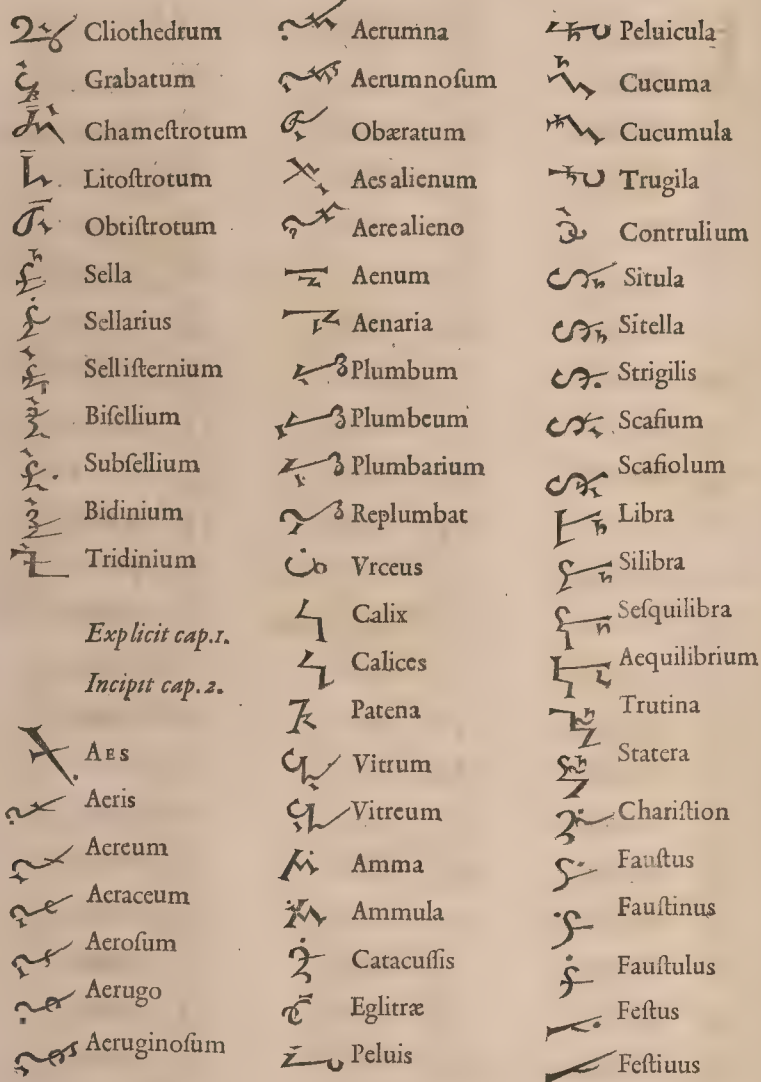 Cliothedrum
Grabatum
Chameſtrotum
Litoſtrotum
Obtiſtrotum
Sella
Sellarius
Selliſternium
Biſellium
Subſellium
Bidinium
Tridinium
Explicit cap.1.
Incipit cap.2.
AES
Aeris
Aereum
Aeraceum
Aeroſum
Aerugo
Aeruginoſum
Aerumna
Aerumnoſum
Obæratum
Aes alienum
Aere alieno
Aenum
Aenaria
Plumbum
Plumbeum
Plumbarium
Replumbat
Vrceus
Calix
Calices
Patena
Vitrum
Vitreum
Amma
Ammula
Catacuſſis
Eglitræ
Peluis
Peluicula
Cucuma
Cucumula
Trugila
Contrulium
Situla
Sitella
Strigilis
Scafium
Scafiolum
Libra
Silibra
Seſquilibra
Aequilibrium
Trutina
Statera
Chariſtion
Fauſtus
Fauſtinus
Fauſtulus
Feſtus
Feſtiuus